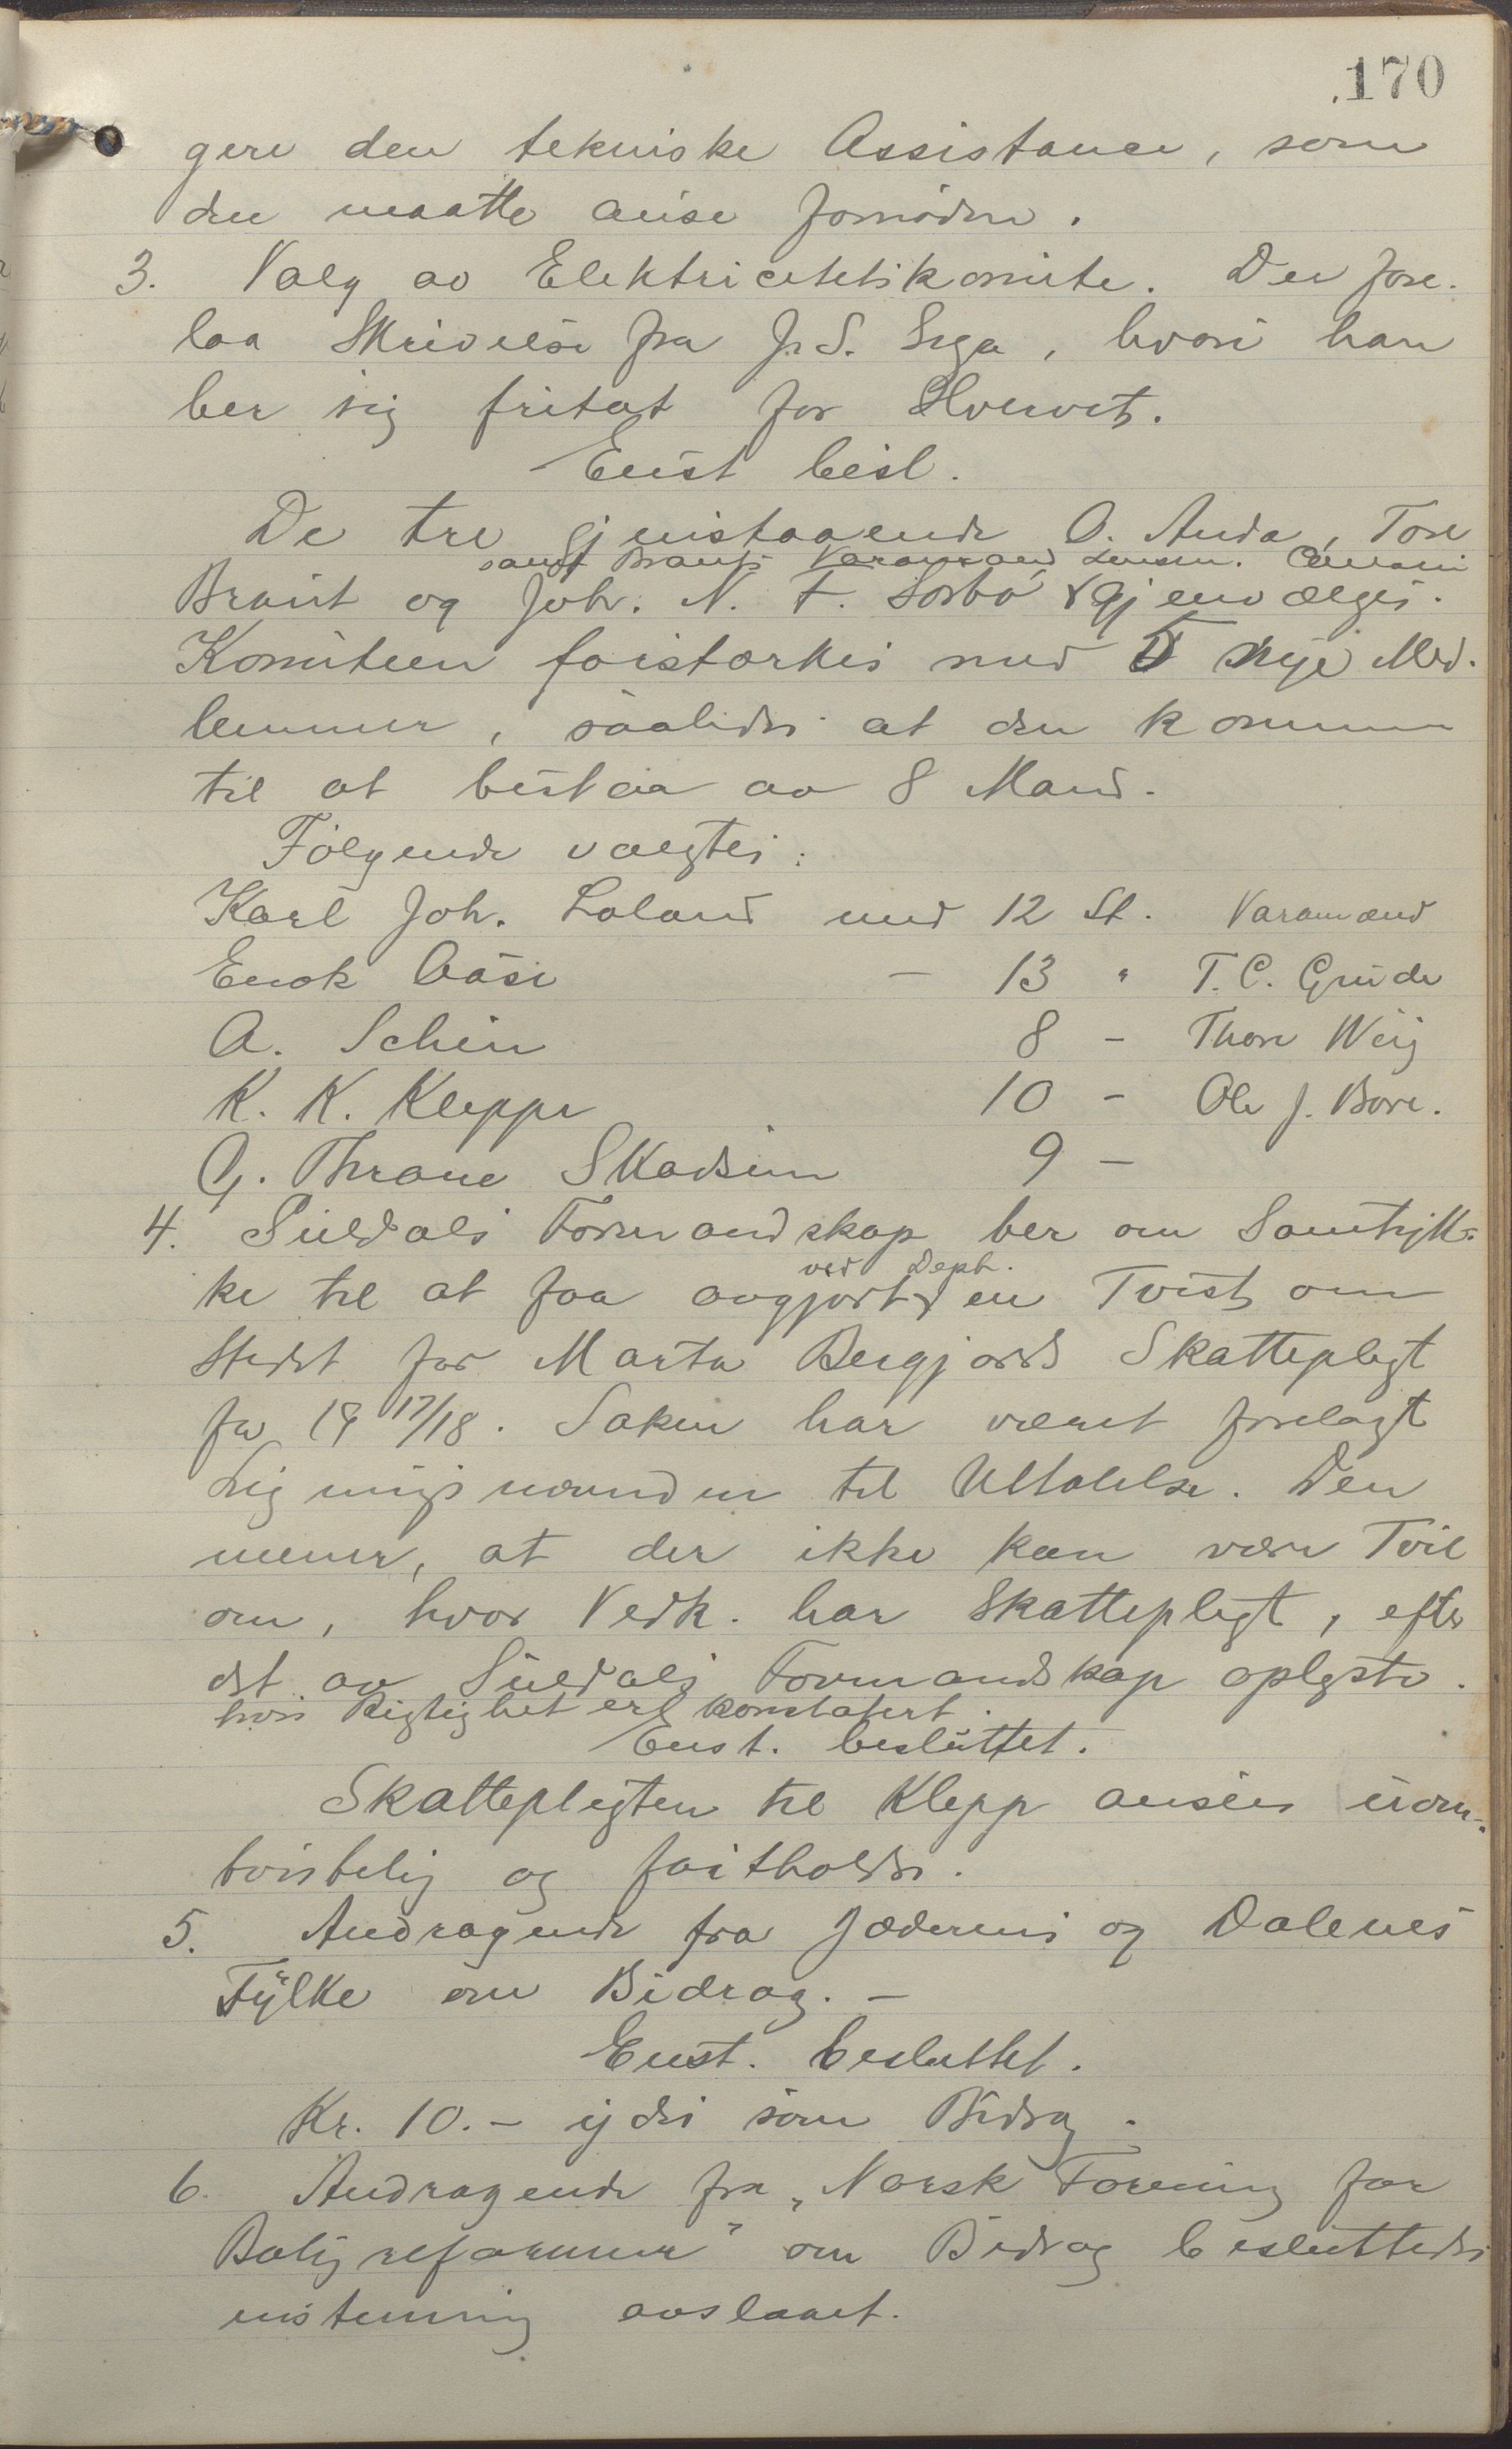 170
gere den tekniske Assistance, som
den maatte anse fornöden.
3. Valg av Elektricitetskomite. Der fore-
laa Skrivelse fra Fr. S. Sega, hvori han
ber sig fritat for Hvervet.
Enst besl.
De tre gjenstaaende O. Anda, Tore
samt Brauts Varamand Lensm.
Braut og Joh. N. F. Sörbö gjenvælges.
Komiteen forstærkes med 5 nye Med-
lemmer, saaledes at den kommer
til at bestaa av 8 Mand.
Fölgende valgtes:
Karl Joh. Laland med 12 St. Varamænd
Enok Aase — 13 " T. C. Grude
A. Schen 8 - Thore Wiig
K. K. Kleppe 10 - Ole J. Bore.
G. Thrane Skadsem 9 -
4. Suldals Formandskap ber om Samtyk-
ved Dept.
ke til at faa avgjort en Tvist om
Stedet for Marta Bergjords Skattepligt
for 1917/18. Saken har været forelagt
Ligningsnævnden til Uttalelse. Den
mener, at der ikke kan være Tvil
om, hvor Vedk. har Skattepligt, efter
det av Suldals Formandskap oplyste.
hvis Rigtighet er konstatert.
Enst. besluttet.
Skattepligten til Klepp ansees uom-
tvistelig og fastholdes.
5. Andragende fra Jæderens og Dalenes
Fylke om Bidrag. —
Enst. besluttet.
Kr. 10.- ydes som Bidrag.
6. Andragende fra "Norsk Forening for
Boligreformer" om Bidrag besluttedes
enstemmig avslaaet.